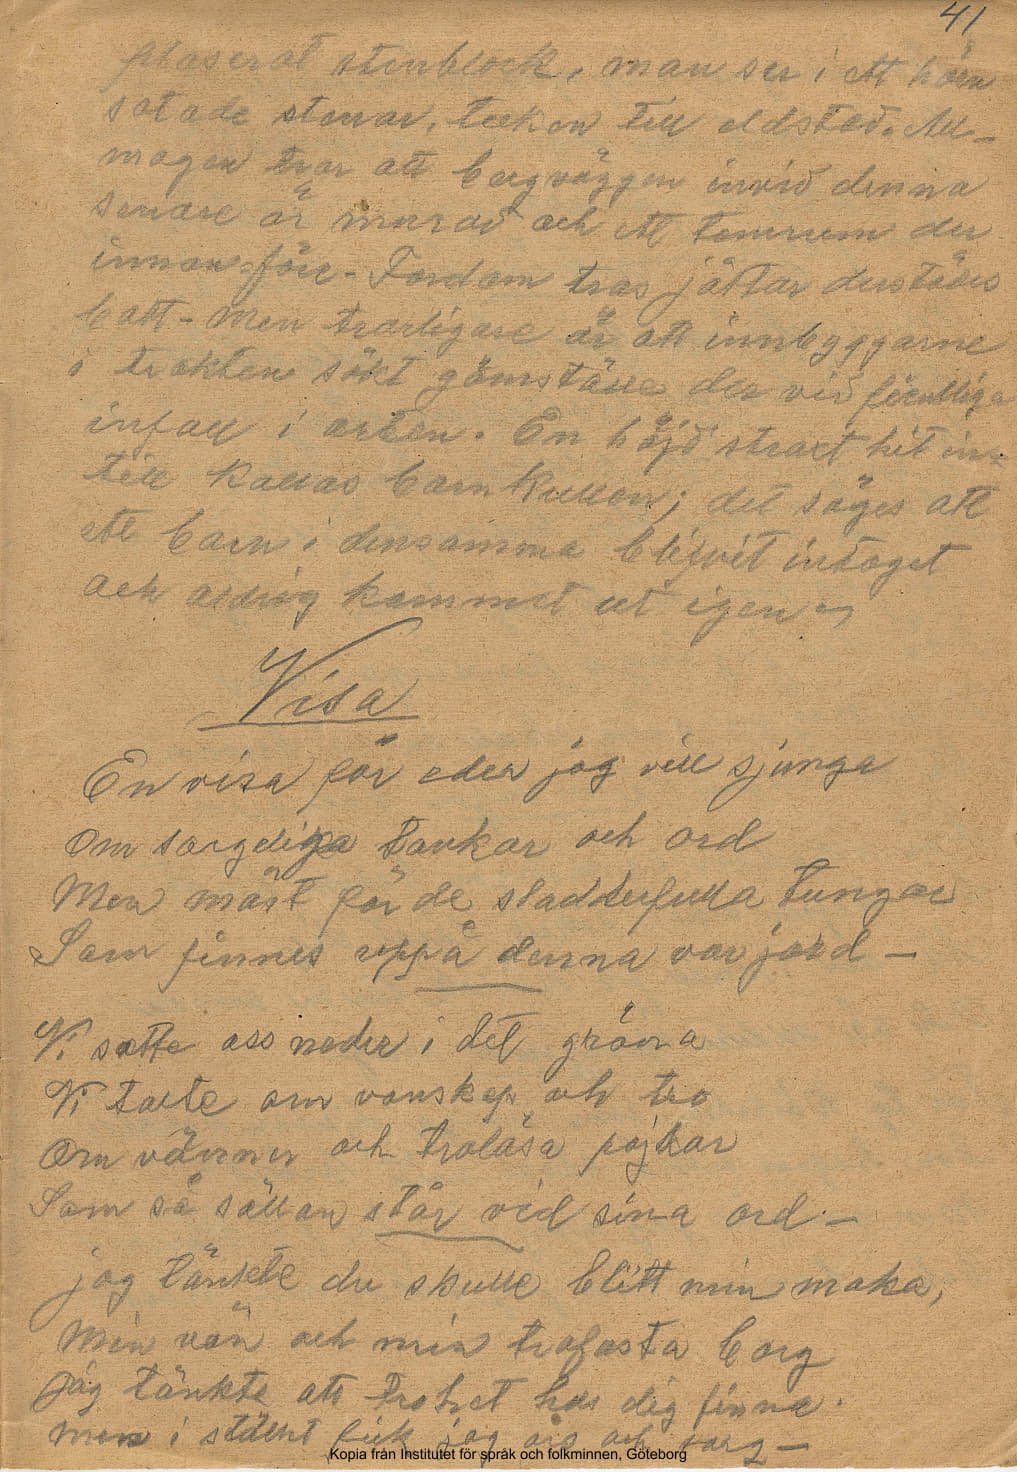 41
plaserat stenblock, man ser i ett hörn
sotade stenar, tecken till eldstad. All-
mogen tror att bergväggen invid denna
senare är murad och ett tomrum der
innanföre. Fordom tros jättar derstädes
bott - Men troligare är att innbyggarne
i trakten sökt gömställe der vid fientliga
infall i orten. En höjd straxt hit in-
till kallas barnkullen; det säges att
ett barn i densamma blifvit intaget
och aldrig kommet ut igen
Visa
En visa för eder jag vill sjunga
Om sorgeliga tankar och ord
Men mäst för de sladderfulla tungor
Som finnes uppå denna vor jord -
Vi satte oss neder i det gröna
Vi talte om vanskap och tro
Om vänner och trolösa pojkar
Som så sällan står vid sina ord -
jag tänkte du skulle blitt min maka,
Min vän och min trofasta borg
Jag tänkte att trohet hos dig finna.
Men i stället fick jag och sorg -
Kopia från Institutet för språk och folkminnen, Göteborg